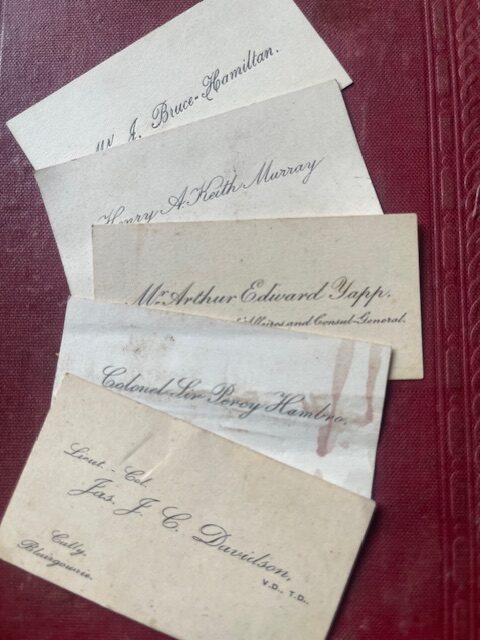 Mr J. Bruce-Hamilton.
Henry A. Keith Murray
Mr. Arthur Edward Yapp.
d'Affaires and Consul-General.
Colonel Sir Percy Hambro.
Lieut. - Col.
Jas. J. C. Davidson.
V.D., T.D.,
Cully.
Blairgowrie.